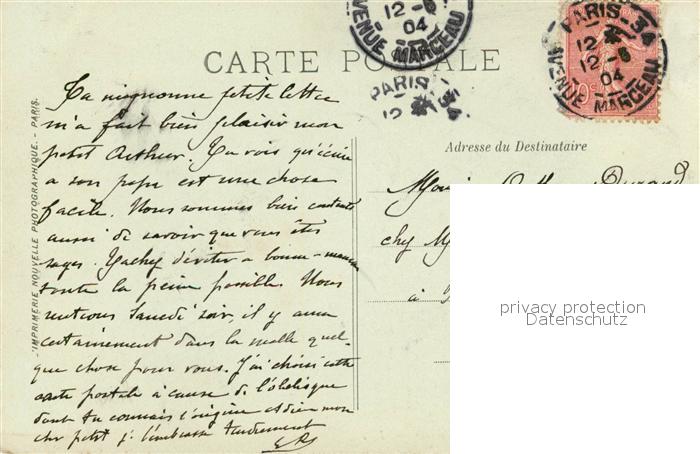 12-6
04
AVENUE MARCEAU
PARIS-34
12
12-6
04
AVENUE MARCEAU
CARTE POSTALE
PARIS 34
12
Adresse du Destinataire
IMPRIMERIE NOUVELLE PHOTOGRAPHIQUE.- PARIS.
Ta mignonne petite lettre
m'a fait bien plaisir mon
petit Arthur. Tu vois qu'écrire
a son papa est une chose
facile. Nous sommes bien contents
aussi de savoir que vous êtes
sages. Tachez d'éviter a bonne-maman
toute la peine possible. Nous
rentrons Samedi soir, il y aura
certainement dans la malle quel-
que chose pour vous. J'ai choisi cette
carte postale à cause de l'obélisque
dont tu connais l'origine et dieu mon
cher petit je t'embrasse tendrement
Durand
chez
à
privacy protection
Datenschutz